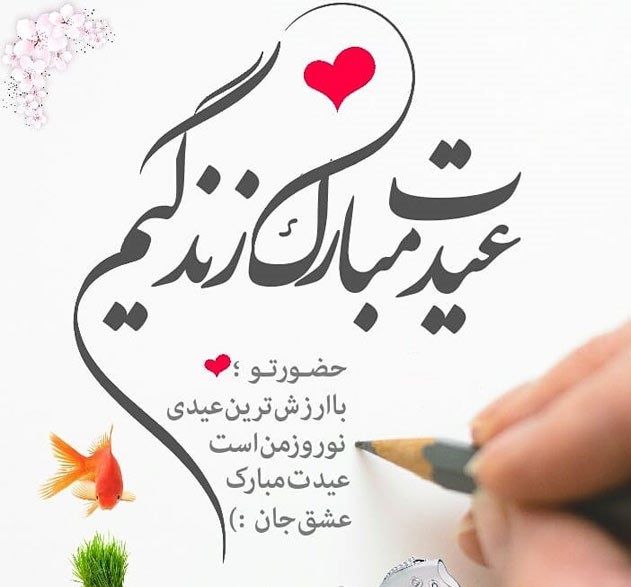 عیدت مبارک زندگیم
حضورتو ؛
باارزش‌ترین‌عیدی
نوروزمن‌است
عیدت‌مبارک
عشق‌جان :)